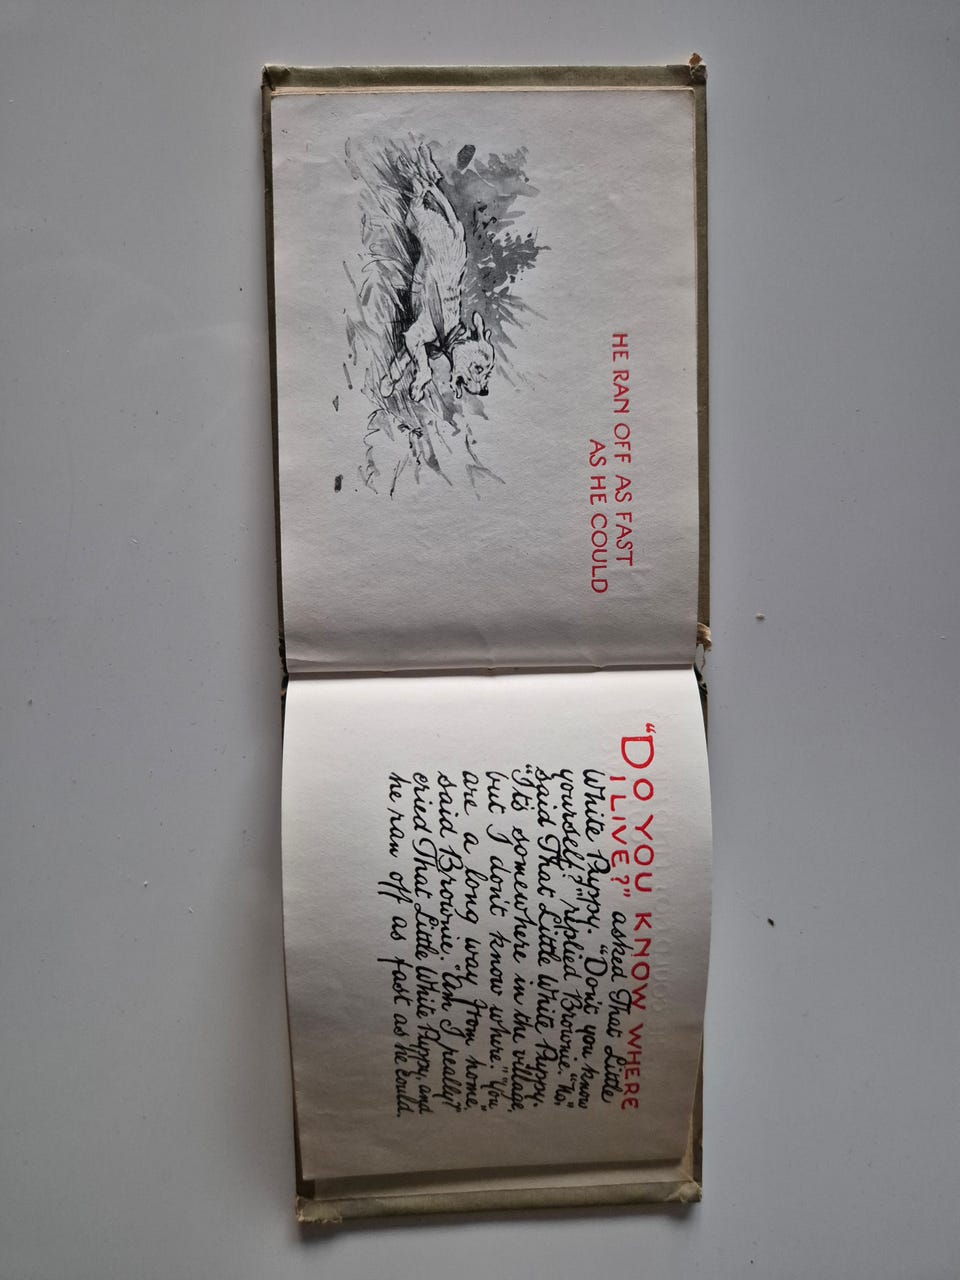 HE RAN OFF AS FAST
AS HE COULD
"DO YOU KNOW WHERE
I LIVE?" asked That Little
White Puppy. "Don't you know
yourself?" replied Brownie. "No,"
said That Little White Puppy.
"It's somewhere in the village,
but I don't know where." "You
are a long way from home,"
said Brownie. "Am I really?"
cried That Little White Puppy, and
he ran off as fast as he could.